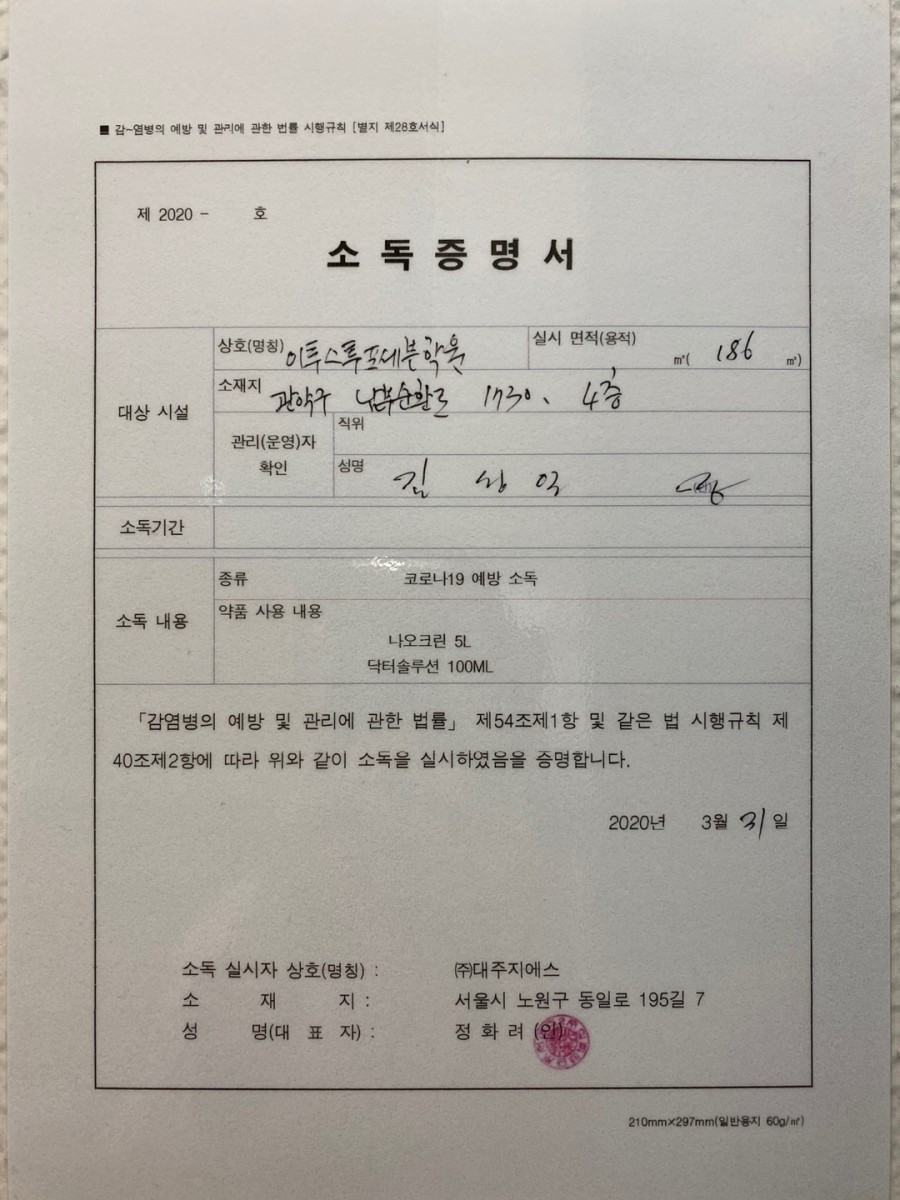 ■ 감~염병의 예방 및 관리에 관한 법률 시행규칙 [별지 제28호서식]
제 2020 - 호
소독증명서
대상 시설
상호(명칭) 이투스투포세븐학원
실시 면적(용적) ㎡( 186 ㎥)
소재지 관악구 남부순환로 1730, 4층
관리(운영)자
확인
직위
성명 길 상 억
소독기간
소독 내용
종류 코로나19 예방 소독
약품 사용 내용
나오크린 5L
닥터솔루션 100ML
「감염병의 예방 및 관리에 관한 법률」 제54조제1항 및 같은 법 시행규칙 제
40조제2항에 따라 위와 같이 소독을 실시하였음을 증명합니다.
2020년 3월 31일
소독 실시자 상호(명칭) : ㈜대주지에스
소 재 지 : 서울시 노원구 동일로 195길 7
성 명(대 표 자) : 정 화 려 (인)
210mm×297mm(일반용지 60g/㎡)